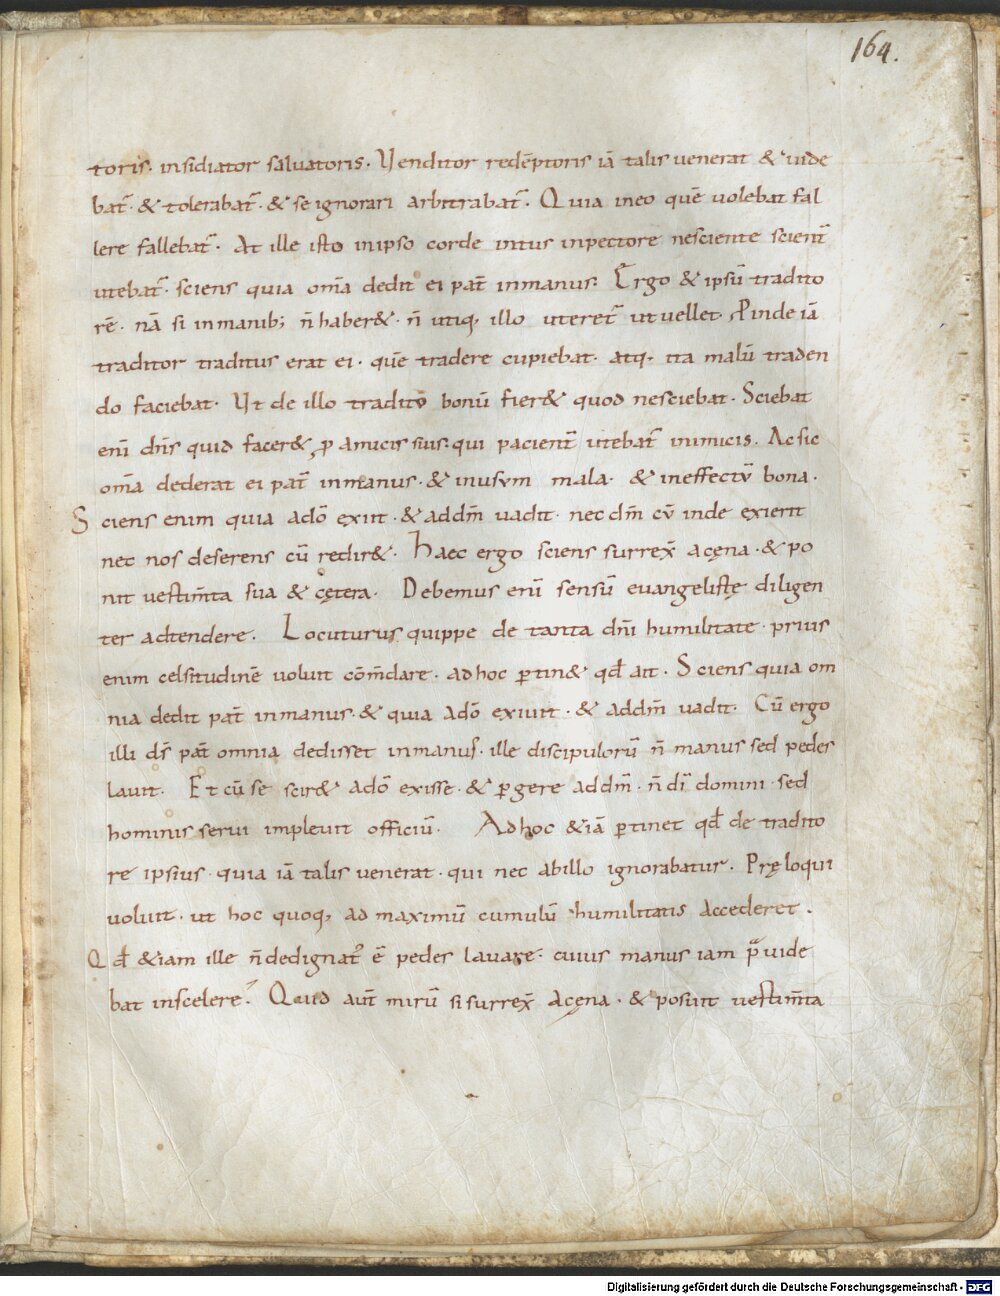 164.
toris· insidiator saluatoris· Venditor redēptoris iā talis uenerat & uide
bat̄· & tolerabat̄· & se ignorari arbitrabat̄· Quia in eo quē uolebat fal
lere fallebat̄· At ille isto in ipso corde intus in pectore nesciente scient̄
utebat̄· sciens quia om̄a dedit ei pat̄ in manus· Ergo & ipsū tradito
rē· nā si in manib; n̄ haber&· n̄ utiq, illo uteret̄ ut uellet· Proinde iā
traditor traditus erat ei· quē tradere cupiebat· atq, ita malū traden
do faciebat· Vt de illo tradito bonū fier& quod nesciebat· Sciebat
eni dn̄s quid facer& ꝓ amicis suis· qui pacient̄ utebat̄ inimicis· Ac sic
om̄a dederat ei pat̄ in manus· & in usum mala· & in effectū bona·
Sciens enim quia a dō exiit· & ad dm̄ uadit· nec dm̄ cū inde exierit
nec nos deserens cū redir&· Haec ergo sciens surrex̄ a cęna· & po
nit uestim̄ta sua & cętera· Debemus enī sensū euangelistę diligen
ter adtendere· Locuturus quippe de tanta dn̄i humilitate· prius
enim celsitudinē uoluit cōm̄dare· ad hoc ꝑtin& qd̄ ait· Sciens quia om
nia dedit pat̄ in manus· & quia a dō exiuit· & ad dm̄ uadit· Cū ergo
illi ds̄ pat̄ omnia dedisset in manus· ille discipulorū n̄ manus sed pedes
lauit· Et cū se scir& a dō exisse· & ꝑgere ad dm̄· n̄ dī domini· sed
hominis serui impleuit officiū· Ad hoc &iā ꝑtinet qd̄ de tradito
re ipsius· quia iā talis uenerat· qui nec ab illo ignorabatur· Pręloqui
uoluit· ut hoc quoq, ad maximū cumulū humilitatis accederet·
Qd̄ &iam ille n̄ dedignat̄ ē pedes lauare· cuius manus iam p̄uide
bat in scelere? Quid aut̄ mirū si surrex̄ a cęna· & posuit uestim̄ta
Digitalisierung gefördert durch die Deutsche Forschungsgemeinschaft - DFG